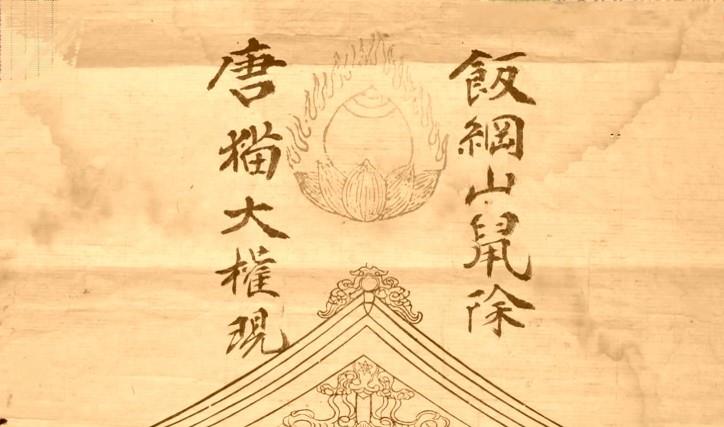 飯綱山鼠除
唐猫大権現